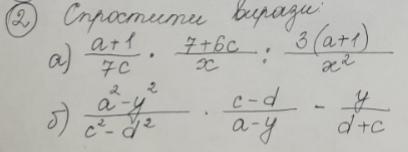 ② Спростити вирази:
а) (a+1)/(7c) · (7+6c)/x : (3(a+1))/x²
б) (a²-y²)/(c²-d²) · (c-d)/(a-y) - y/(d+c)